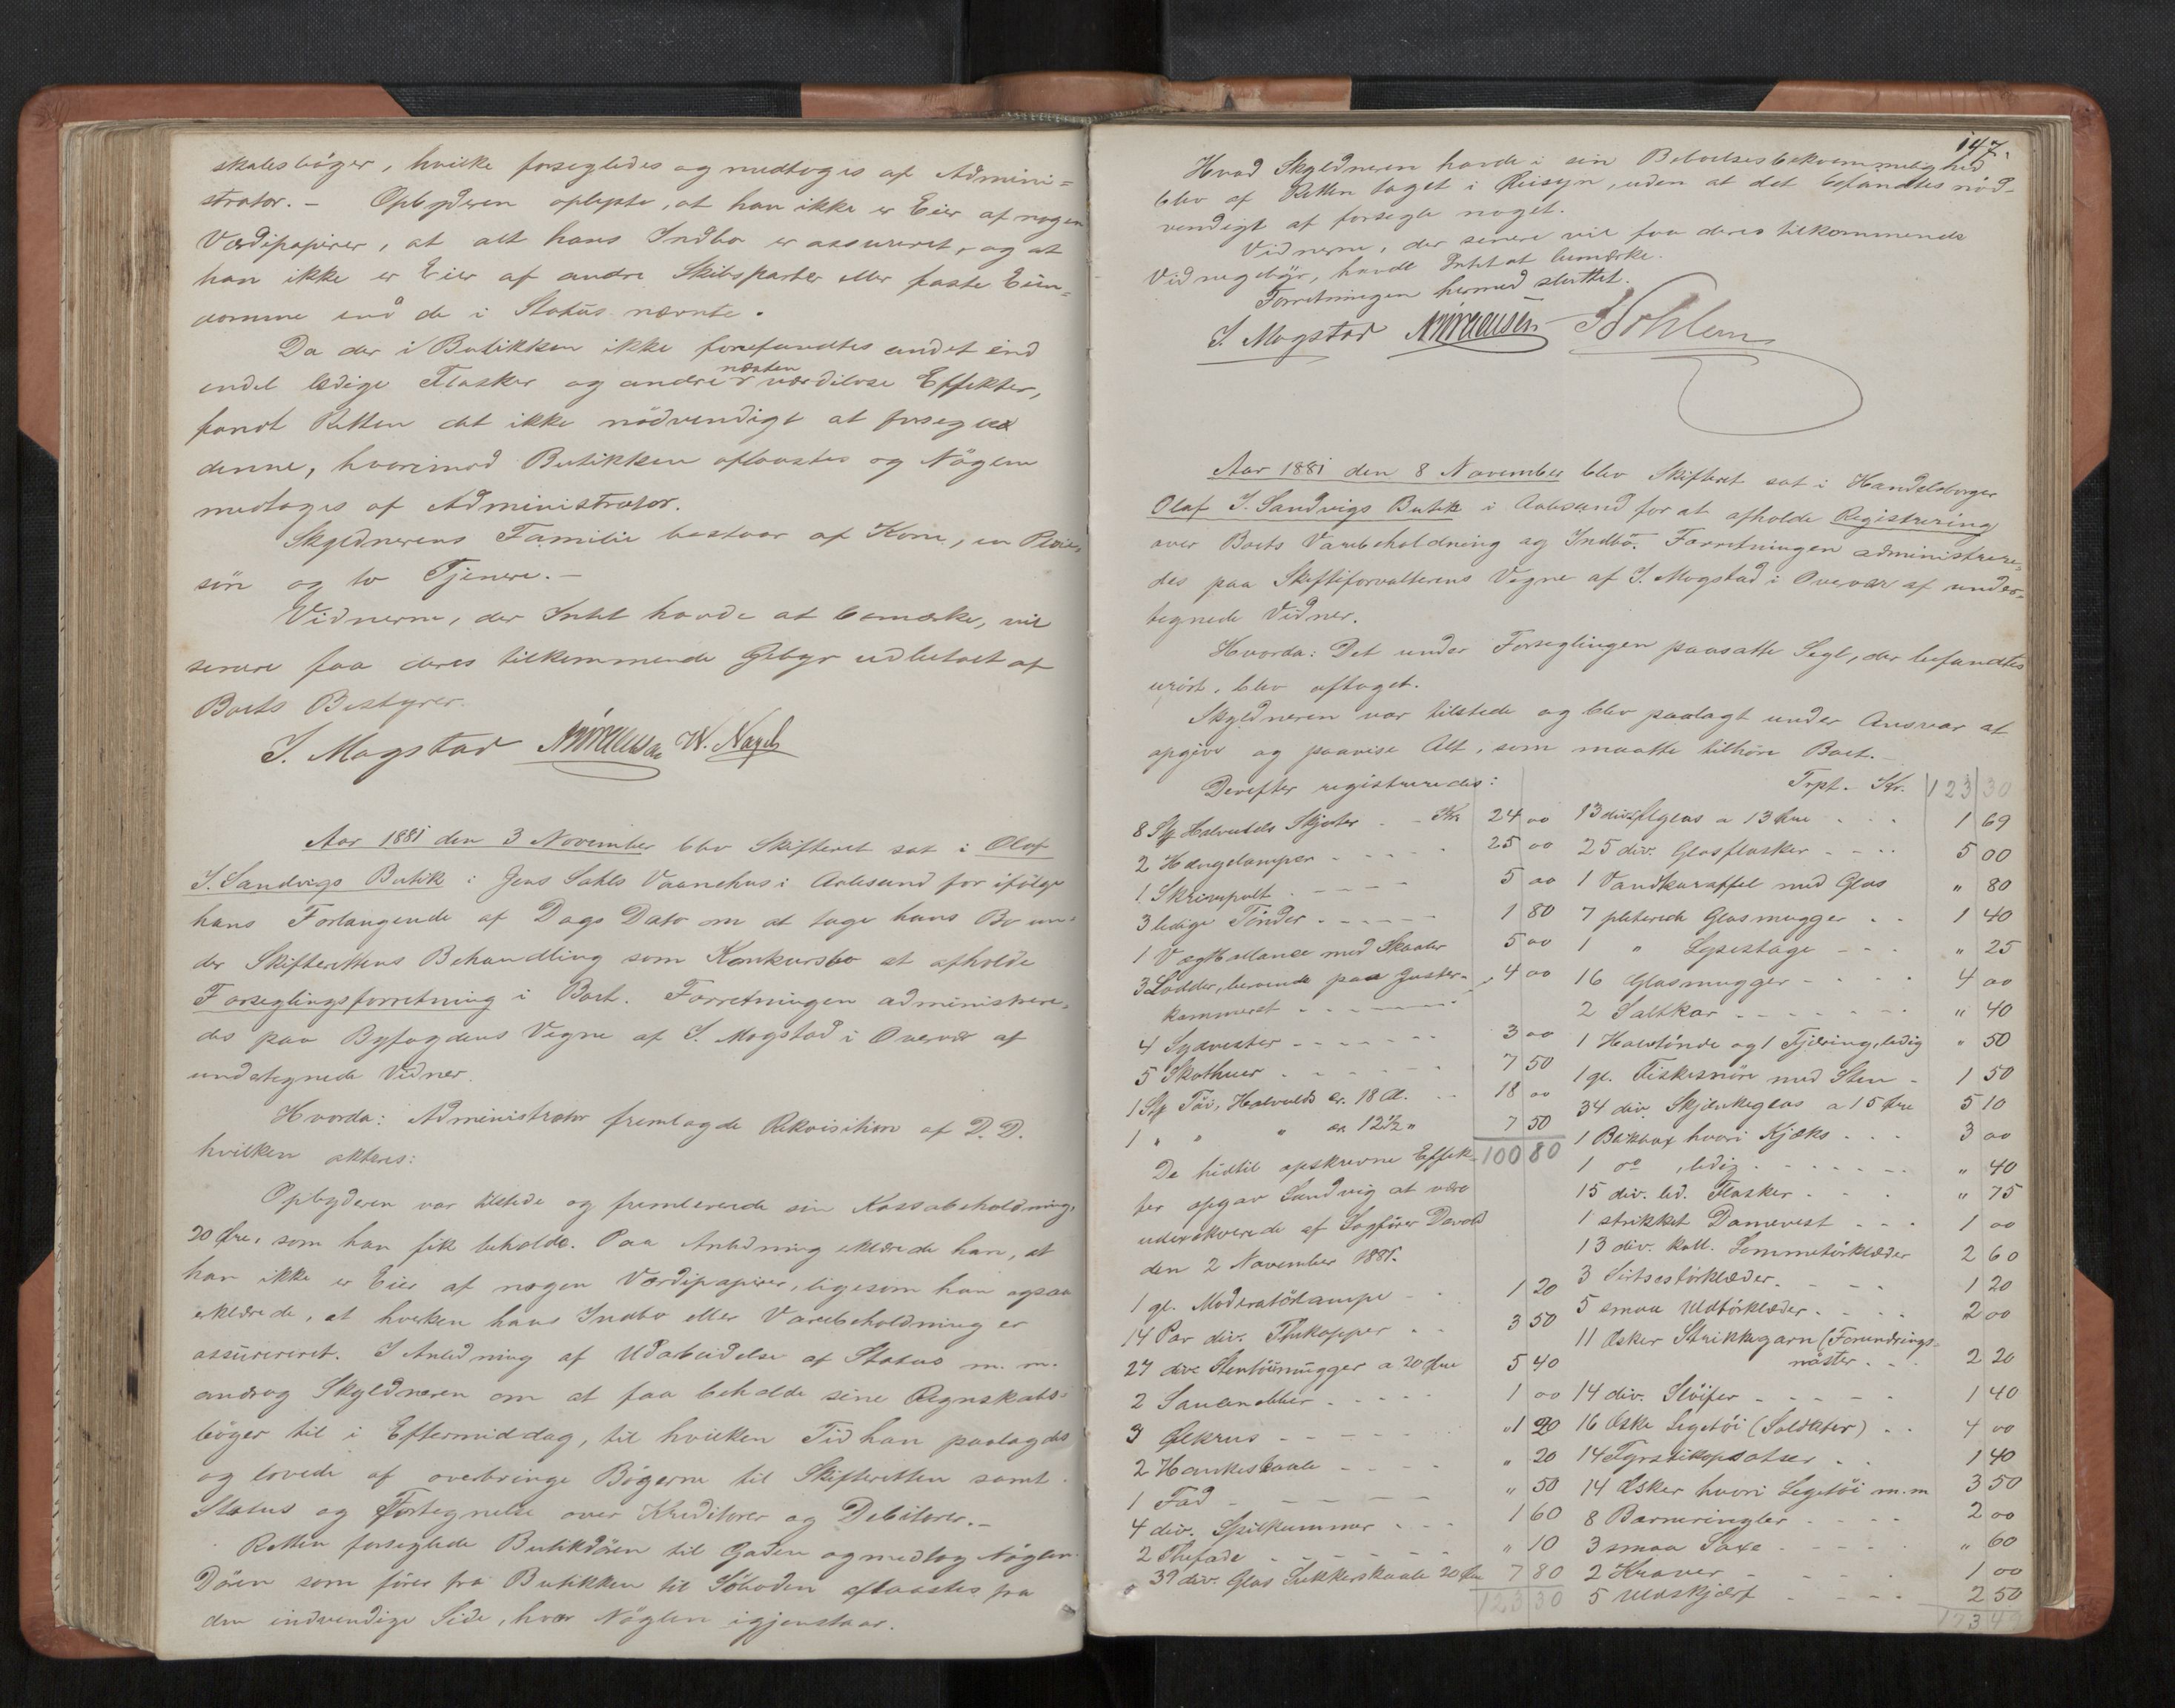 skabsbøger, hvilke forsegledes og medtoges af Admini=
strator. – Opbyderen oplyste, at han ikke er Eier af nogen
Værdipapirer, at alt hans Indbo er assureret, og at
han ikke er Eier af andre Skibsparter eller faste Eien=
domme end de i Status nævnte.
Da der i Butikken ikke forefandtes andet end
endel ledige Flasker og andre næsten værdiløse Effekter,
fandt Retten det ikke nödvendigt at forsegle
denne, hvorimod Butikken aflaastes og Nöglen
medtoges af Administrator.
Skyldnerens Familie bestaar af Kone, en Pleie=
sön og to Tjenere. –
Vidnerne, der Intet havde at bemærke, vil
senere faa deres tilkommende Gebyr udbetalt af
Boets Bestyrer.
S. Mogstad W. Nagel
Aar 1881 den 3 November blev Skifteret sat i Olaf
J. Sandvigs Butik i Jens Sahls Vaanehus i Aalesund for ifölge
hans Forlangende af Dags Dato om at tage hans Bo un=
der Skifterettens Behandling som Konkursbo at afholde
Forseglingsforretning i Boet. Forretningen administrere=
des paa Byfogdens Vegne af S. Mogstad i Overvær af
undertegnede Vidner.
Hvorda: Administrator fremlagde Rekvisition af D.D.
hvilken akteres:
Opbyderen var tilstede og fremleverede sin Kassabeholdning,
20 Øre, som han fik beholde. Paa Anledning erklærede han, at
han ikke er Eier af nogen Værdipapirer, ligesom han ogsaa
erklærede, at hverken hans Indbo eller Varebeholdning er
assureret. I Anledning af Udarbeidelse af Status m. m.
androg Skyldneren om at faa beholde sine Regnskabs=
böger til i Eftermiddag, til hvilken Tid han paalagdes
og lovede at overbringe Bögerne til Skifteretten samt
Status og Fortegnelse over Kreditorer og Debitorer. –
Retten forseglede Butikdören til Gaden og medtog Nöglen.
Dören som förer fra Butikken til Söboden aflaastes fra
den indvendige Side, hvor Nöglen igjenstaar.
147.
Hvad Skyldneren havde i sin Beboelsesbekvemmelighed
blev af Retten taget i Øiesyn, uden at det befandtes nöd-
vendigt at forsegle noget.
Vidnerne, der senere vil faa deres tilkommende
Vidnegebyr, havde Intet at bemærke.
Forretningen hermed sluttet.
S. Mogstad
Aar 1881 den 8 November blev Skifteret sat i Handelsborger
Olaf J. Sandvigs Butik i Aalesund for at afholde Registrering
over Boets Varebeholdning og Indbo. Forretningen administrere=
des paa Skifteforvalterens Vegne af S. Mogstad i Overvær af under=
tegnede Vidner.
Hvorda: Det under Forseglingen paasatte Segl, der befandtes
urört, blev aftaget.
Skyldneren var tilstede og blev paalagt under Ansvar at
opgive og paavise Alt, som maatte tilhöre Boet. –
Derefter registreredes:
8 St. Halvulds Skjorter Kr. 24 00
2 Hængelamper 25 00
1 Skrivepult 5 00
3 ledige Tönder 1 80
1 Vægtballance med Skaaler 5 00
3 Lodder, beroende paa Juster=
kammeret 4 00
4 Sydvester 3 00
5 Skothuer 7 50
1 St. Töi, Halvulds ca. 18 Al. 18 00
1 " " " ca 12½ " 7 50
100 80
De hidtil opskrevne Effek=
ter opgav Sandvig at være
udexekverede af Sagförer Devold
den 2 November 1881.
1 gl. Moderatörlampe 1 20
14 Par div. Thekopper 3 50
27 div. Stentöimugger a 20 Øre 5 40
2 Sauanebber 1 00
3 Ølkrus 1 20
2 Hankeskaale " 20
1 Fad " 50
4 div. Spilkummer 1 60
2 Thefade " 10
39 div. Glas Sukkerskaale 20 Øre 7 80
123 30
Trpt. Kr. 123 30
13 div. Ølglas a 13 Øre 1 69
25 div. Glasflasker 5 00
1 Vandkaraffel med Glas " 80
7 pleterede Glasmugger 1 40
1 " Lysestage " 25
16 Glasmugger 4 00
2 Saltkar " 40
1 Halvtönde og 1 Fjæring, ledig " 50
1 gl. Fiskesnöre med Sten 1 50
34 div. Skjænkeglas a 15 Øre 5 10
1 Blikbox hvori Kjæks 3 00
1 do , ledig " 40
15 div. led. Flasker " 75
1 strikket Damevest 1 00
13 div. kall. Lommetörklæder 2 60
3 Sirtsestörklæder 1 20
5 smaa Uldtörklæder 2 00
11 Æsker Strikkegarn (Forundrings-
nöster 2 20
14 div. Slöifer 1 40
16 Æske Legetöi (Soldater) 4 00
14 Fyrstikopsatser 1 40
14 Æsker hvori Legetöi m.m 3 50
8 Barneringler 2 00
3 smaa Saxe " 60
2 Kraver 1 00
5 Uldskjærf 2 50
173 49